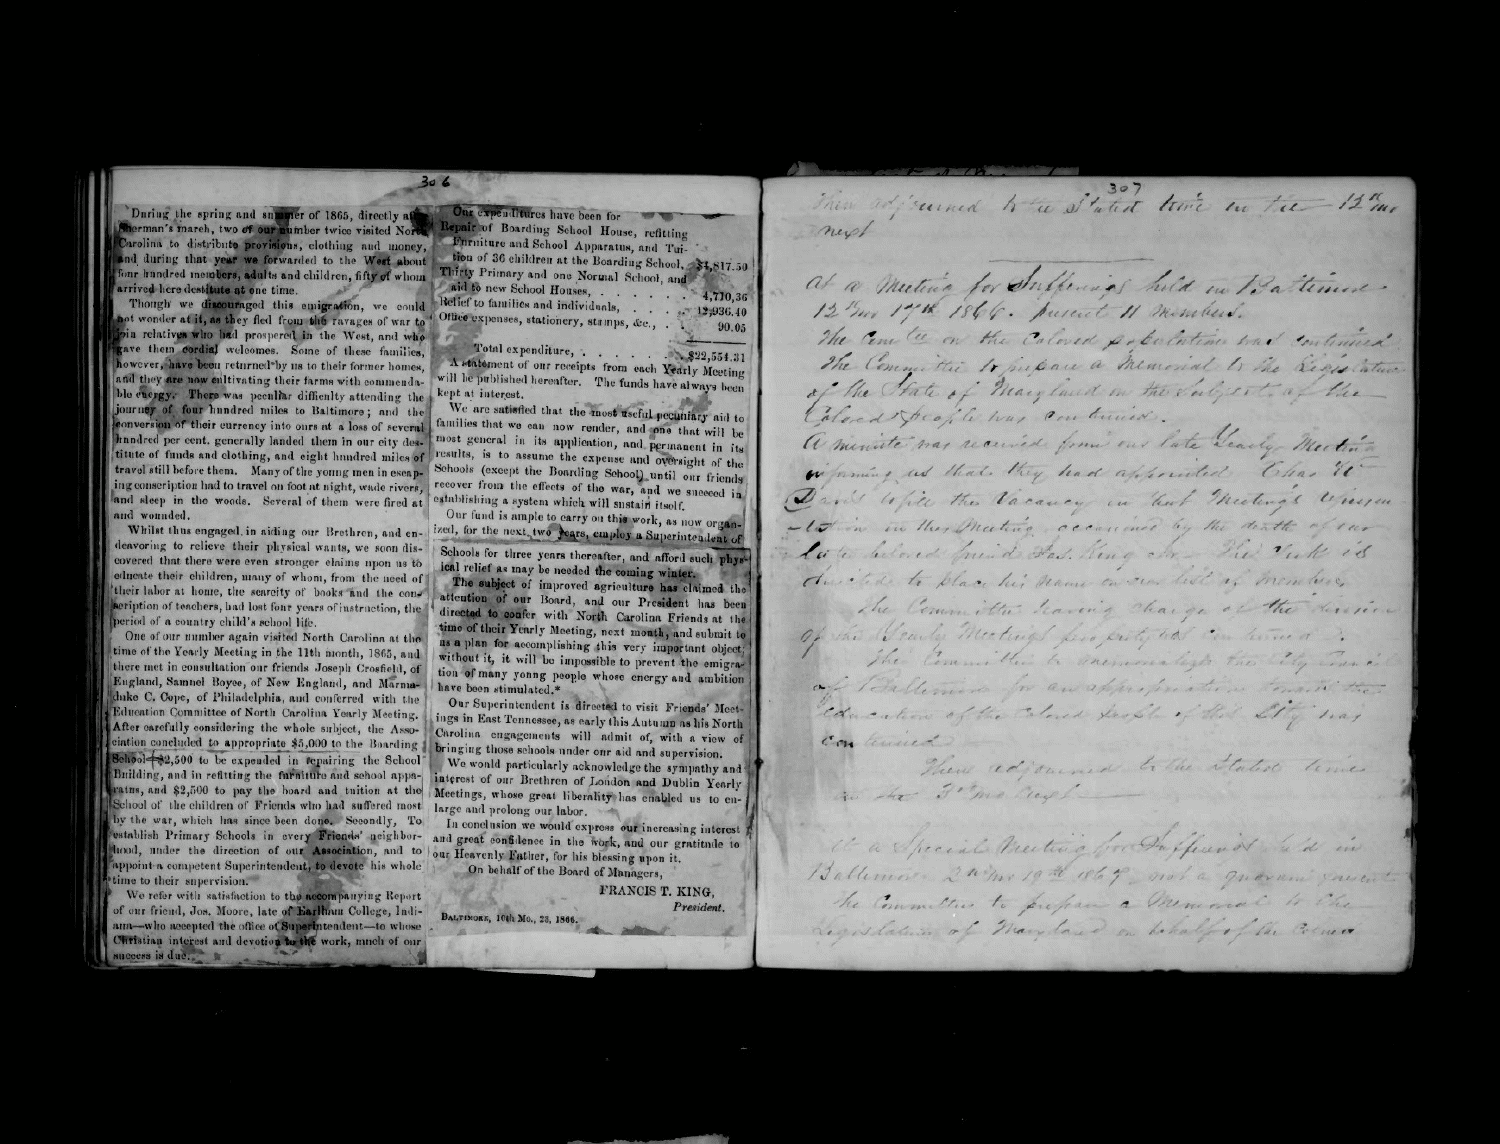 306
During the spring and summer of 1865, directly after
Sherman's march, two of our number twice visited North
Carolina to distribute provisions, clothing and money,
and during that year we forwarded to the West about
four hundred members, adults and children, fifty of whom
arrived here destitute at one time.
Though we discouraged this emigration, we could
not wonder at it, as they fled from the ravages of war to
join relatives who had prospered in the West, and who
gave them cordial welcomes. Some of these families,
however, have been returned by us to their former homes,
and they are now cultivating their farms with commenda-
ble energy. There was peculiar difficulty attending the
journey of four hundred miles to Baltimore; and the
conversion of their currency into ours at a loss of several
hundred per cent. generally landed them in our city des-
titute of funds and clothing, and eight hundred miles of
travel still before them. Many of the young men in escap-
ing conscription had to travel on foot at night, wade rivers,
and sleep in the woods. Several of them were fired at
and wounded.
Whilst thus engaged in aiding our Brethren, and en-
deavoring to relieve their physical wants, we soon dis-
covered that there were even stronger claims upon us to
educate their children, many of whom, from the need of
their labor at home, the scarcity of books and the con-
scription of teachers, had lost four years of instruction, the
period of a country child's school life.
One of our number again visited North Carolina at the
time of the Yearly Meeting in the 11th month, 1865, and
there met in consultation our friends Joseph Crosfield, of
England, Samuel Boyce, of New England, and Marma-
duke C. Cope, of Philadelphia, and conferred with the
Education Committee of North Carolina Yearly Meeting.
After carefully considering the whole subject, the Asso-
ciation concluded to appropriate $5,000 to the Boarding
School—$2,500 to be expended in repairing the School
Building, and in refitting the furniture and school appa-
ratus, and $2,500 to pay the board and tuition at the
School of the children of Friends who had suffered most
by the war, which has since been done. Secondly, To
establish Primary Schools in every Friends' neighbor-
hood, under the direction of our Association, and to
appoint a competent Superintendent, to devote his whole
time to their supervision.
We refer with satisfaction to the accompanying Report
of our friend, Jos. Moore, late of Earlham College, Indi-
ana—who accepted the office of Superintendent—to whose
Christian interest and devotion to the work, much of our
success is due.
Our expenditures have been for
Repair of Boarding School House, refitting
Furniture and School Apparatus, and Tui-
tion of 36 children at the Boarding School, $4,817.50
Thirty Primary and one Normal School, and
aid to new School Houses, . . . . . . . 4,710,36
Relief to families and individuals, . . . . . 12,936.40
Office expenses, stationery, stamps, &c., . . 90.05
Total expenditure, . . . . . . . . $22,554.31
A statement of our receipts from each Yearly Meeting
will be published hereafter. The funds have always been
kept at interest.
We are satisfied that the most useful pecuniary aid to
families that we can now render, and one that will be
most general in its application, and permanent in its
results, is to assume the expense and oversight of the
Schools (except the Boarding School) until our friends
recover from the effects of the war, and we succeed in
establishing a system which will sustain itself.
Our fund is ample to carry on this work, as now organ-
ized, for the next two years, employ a Superintendent of
Schools for three years thereafter, and afford such phys-
ical relief as may be needed the coming winter.
The subject of improved agriculture has claimed the
attention of our Board, and our President has been
directed to confer with North Carolina Friends at the
time of their Yearly Meeting, next month, and submit to
us a plan for accomplishing this very important object;
without it, it will be impossible to prevent the emigra-
tion of many young people whose energy and ambition
have been stimulated.*
Our Superintendent is directed to visit Friends' Meet-
ings in East Tennessee, as early this Autumn as his North
Carolina engagements will admit of, with a view of
bringing those schools under our aid and supervision.
We would particularly acknowledge the sympathy and
interest of our Brethren of London and Dublin Yearly
Meetings, whose great liberality has enabled us to en-
large and prolong our labor.
In conclusion we would express our increasing interest
and great confidence in the work, and our gratitude to
our Heavenly Father, for his blessing upon it.
On behalf of the Board of Managers,
FRANCIS T. KING,
President.
BALTIMORE, 10th Mo., 23, 1866.
307
Then adjourned to the Stated time in the 12th mo
next
At a Meeting for Sufferings held in Baltimore
12th mo 17th 1866. present 11 members.
The Comtee on the Colored population was continued
The Committee to prepare a Memorial to the Legislature
of the State of Maryland on the Subject of the
Colored people was continued.
A minute was received from our late Yearly Meeting
informing us that they had appointed Chas
Davis to fill the Vacancy in that Meeting's represen-
-tation in this Meeting occasioned by the death of our
late beloved friend Jas. King Sr. The Clerk is
directed to place his name on our list of members
The Committee having charge of the division
of the Yearly Meeting's property was continued
The Committee to memorialize the City Council
of Baltimore for an appropriation towards the
education of the Colored people of that City was
continued
Then adjourned to the Stated time
in the 3rd mo next
At a Special Meeting for Sufferings held in
Baltimore 2nd mo 19th 1867 not a quorum present
the Committee to prepare a Memorial to the
Legislature of Maryland on behalf of the Colored